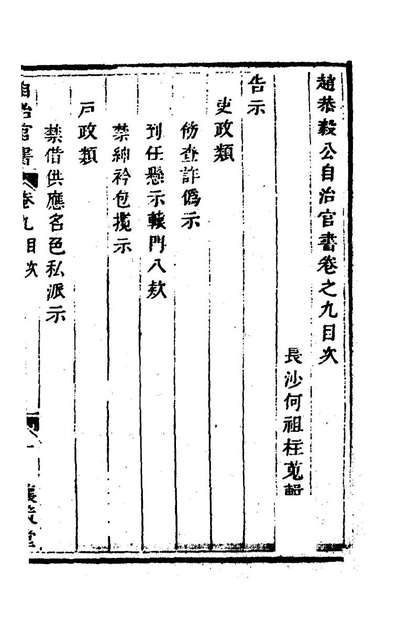 趙恭毅公自治官書卷之九目次
長沙何祖柱蒐輯
告示
吏政類
飭查詐僞示
到任懸示轅門八欵
禁紳衿包攬示
戶政類
禁借供應名色私派示
自治官書 卷九目次 一 懷策堂